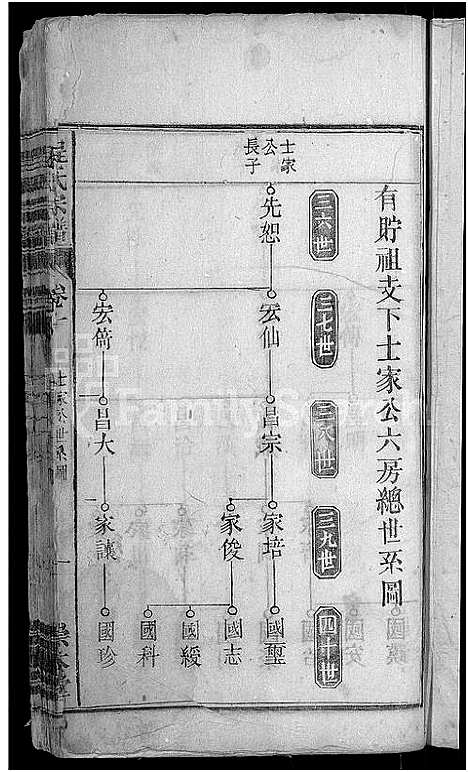 有貯祖支下士家公六房總世系圖
三六世
三七世
三八世
三九世
四十世
士家
公
長子
先恕
宏仙
宏
昌宗
昌大
家培
家俊
家讓
國璽
國志
國綬
國科
國珍
氏宗譜
卷
士家公世系圖
FamilySearch